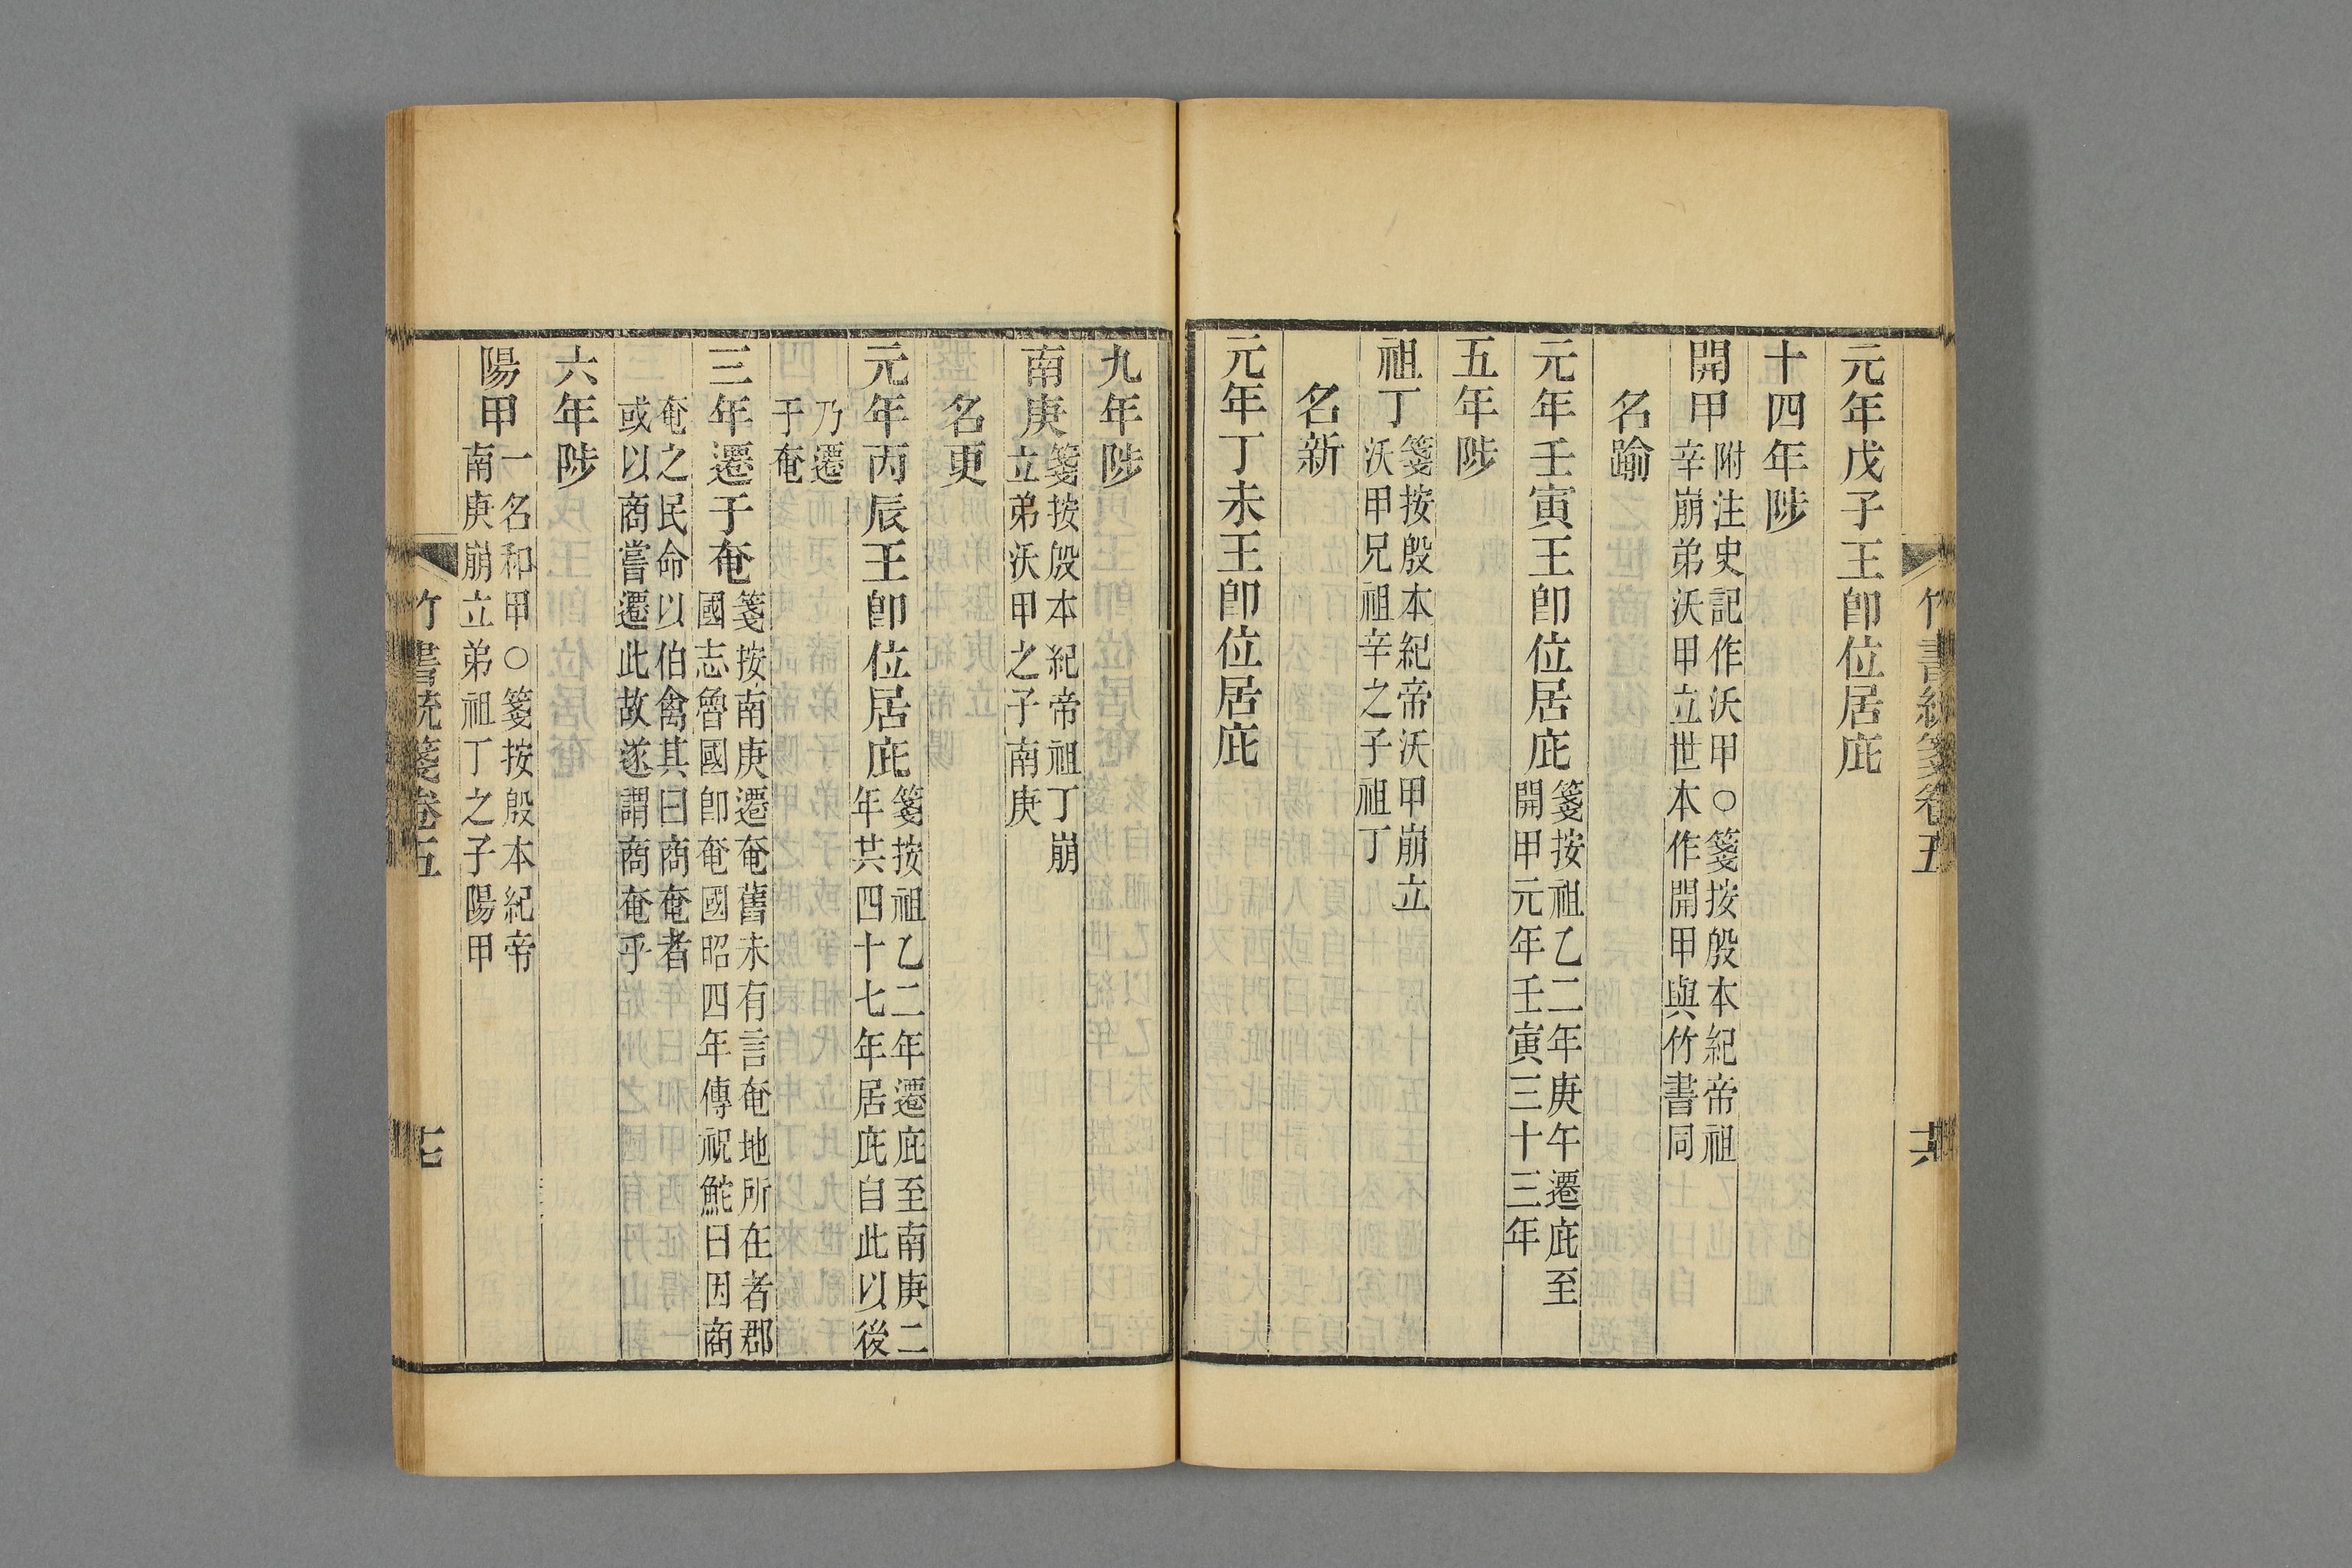 元年戊子王卽位居庇
十四年陟
開甲附注史記作沃甲○箋按殷本紀帝祖
辛崩弟沃甲立世本作開甲與竹書同
名踰
元年壬寅王卽位居庇箋按祖乙二年庚午遷庇至
開甲元年壬寅三十三年
五年陟
祖丁箋按殷本紀帝沃甲崩立
沃甲兄祖辛之子祖丁
名新
元年丁未王卽位居庇
九年陟
南庚箋按殷本紀帝祖丁崩
立弟沃甲之子南庚
名更
元年丙辰王卽位居庇箋按祖乙二年遷庇至南庚二
年共四十七年居庇自此以後
乃遷
于奄
三年遷于奄箋按南庚遷奄舊未有言奄地所在者郡
國志魯國卽奄國昭四年傳祝鮀曰因商
奄之民命以伯禽其曰商奄者
或以商嘗遷此故遂謂商奄乎
六年陟
陽甲一名和甲○箋按殷本紀帝
南庚崩立弟祖丁之子陽甲
竹書統箋卷五